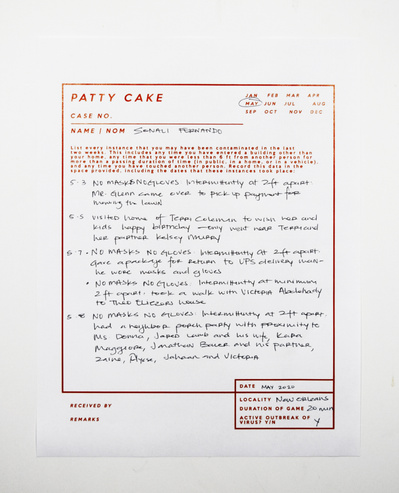 PATTY CAKE
JAN FEB MAR APR
MAY JUN JUL AUG
SEP OCT NOV DEC
CASE NO.
NAME | NOM SENALI FERNANDO
List every instance that you may have been contaminated in the last
two weeks. This includes any time you have entered a building other than
your home, any time that you were less than 6 ft from another person for
more than a passing duration of time (in public, in a home, or in a vehicle),
and any time you have touched another person. Record this data in the
space provided, including the dates that these instances took place:
5·3 NO MASKS NO GLOVES Intermittently at 2ft apart
Mr. Glenn came over to pick up payment for
mowing the lawn
5·5 visited home of Terri Coleman to wish her and
kids happy birthday - only went near Terri and
her partner Kelsey
5·7 · NO MASKS NO GLOVES. Intermittently at 2ft apart.
Gave a package for return to UPS delivery man-
he wore masks and gloves
· NO MASKS NO GLOVES. Intermittently at minimum
2ft apart. took a walk with Victoria
to Theo house
5·8 NO MASKS NO GLOVES. Intermittently at 2ft apart.
had a neighbor porch party with proximity to
Ms Donna, Jared Lamb and his wife, Kara
Maggiore, Jonathan Bauer and his partner,
Zaine, and Victoria
DATE MAY 2020
LOCALITY NEW ORLEANS
DURATION OF GAME 20 min
ACTIVE OUTBREAK OF
VIRUS? Y/N Y
RECEIVED BY
REMARKS